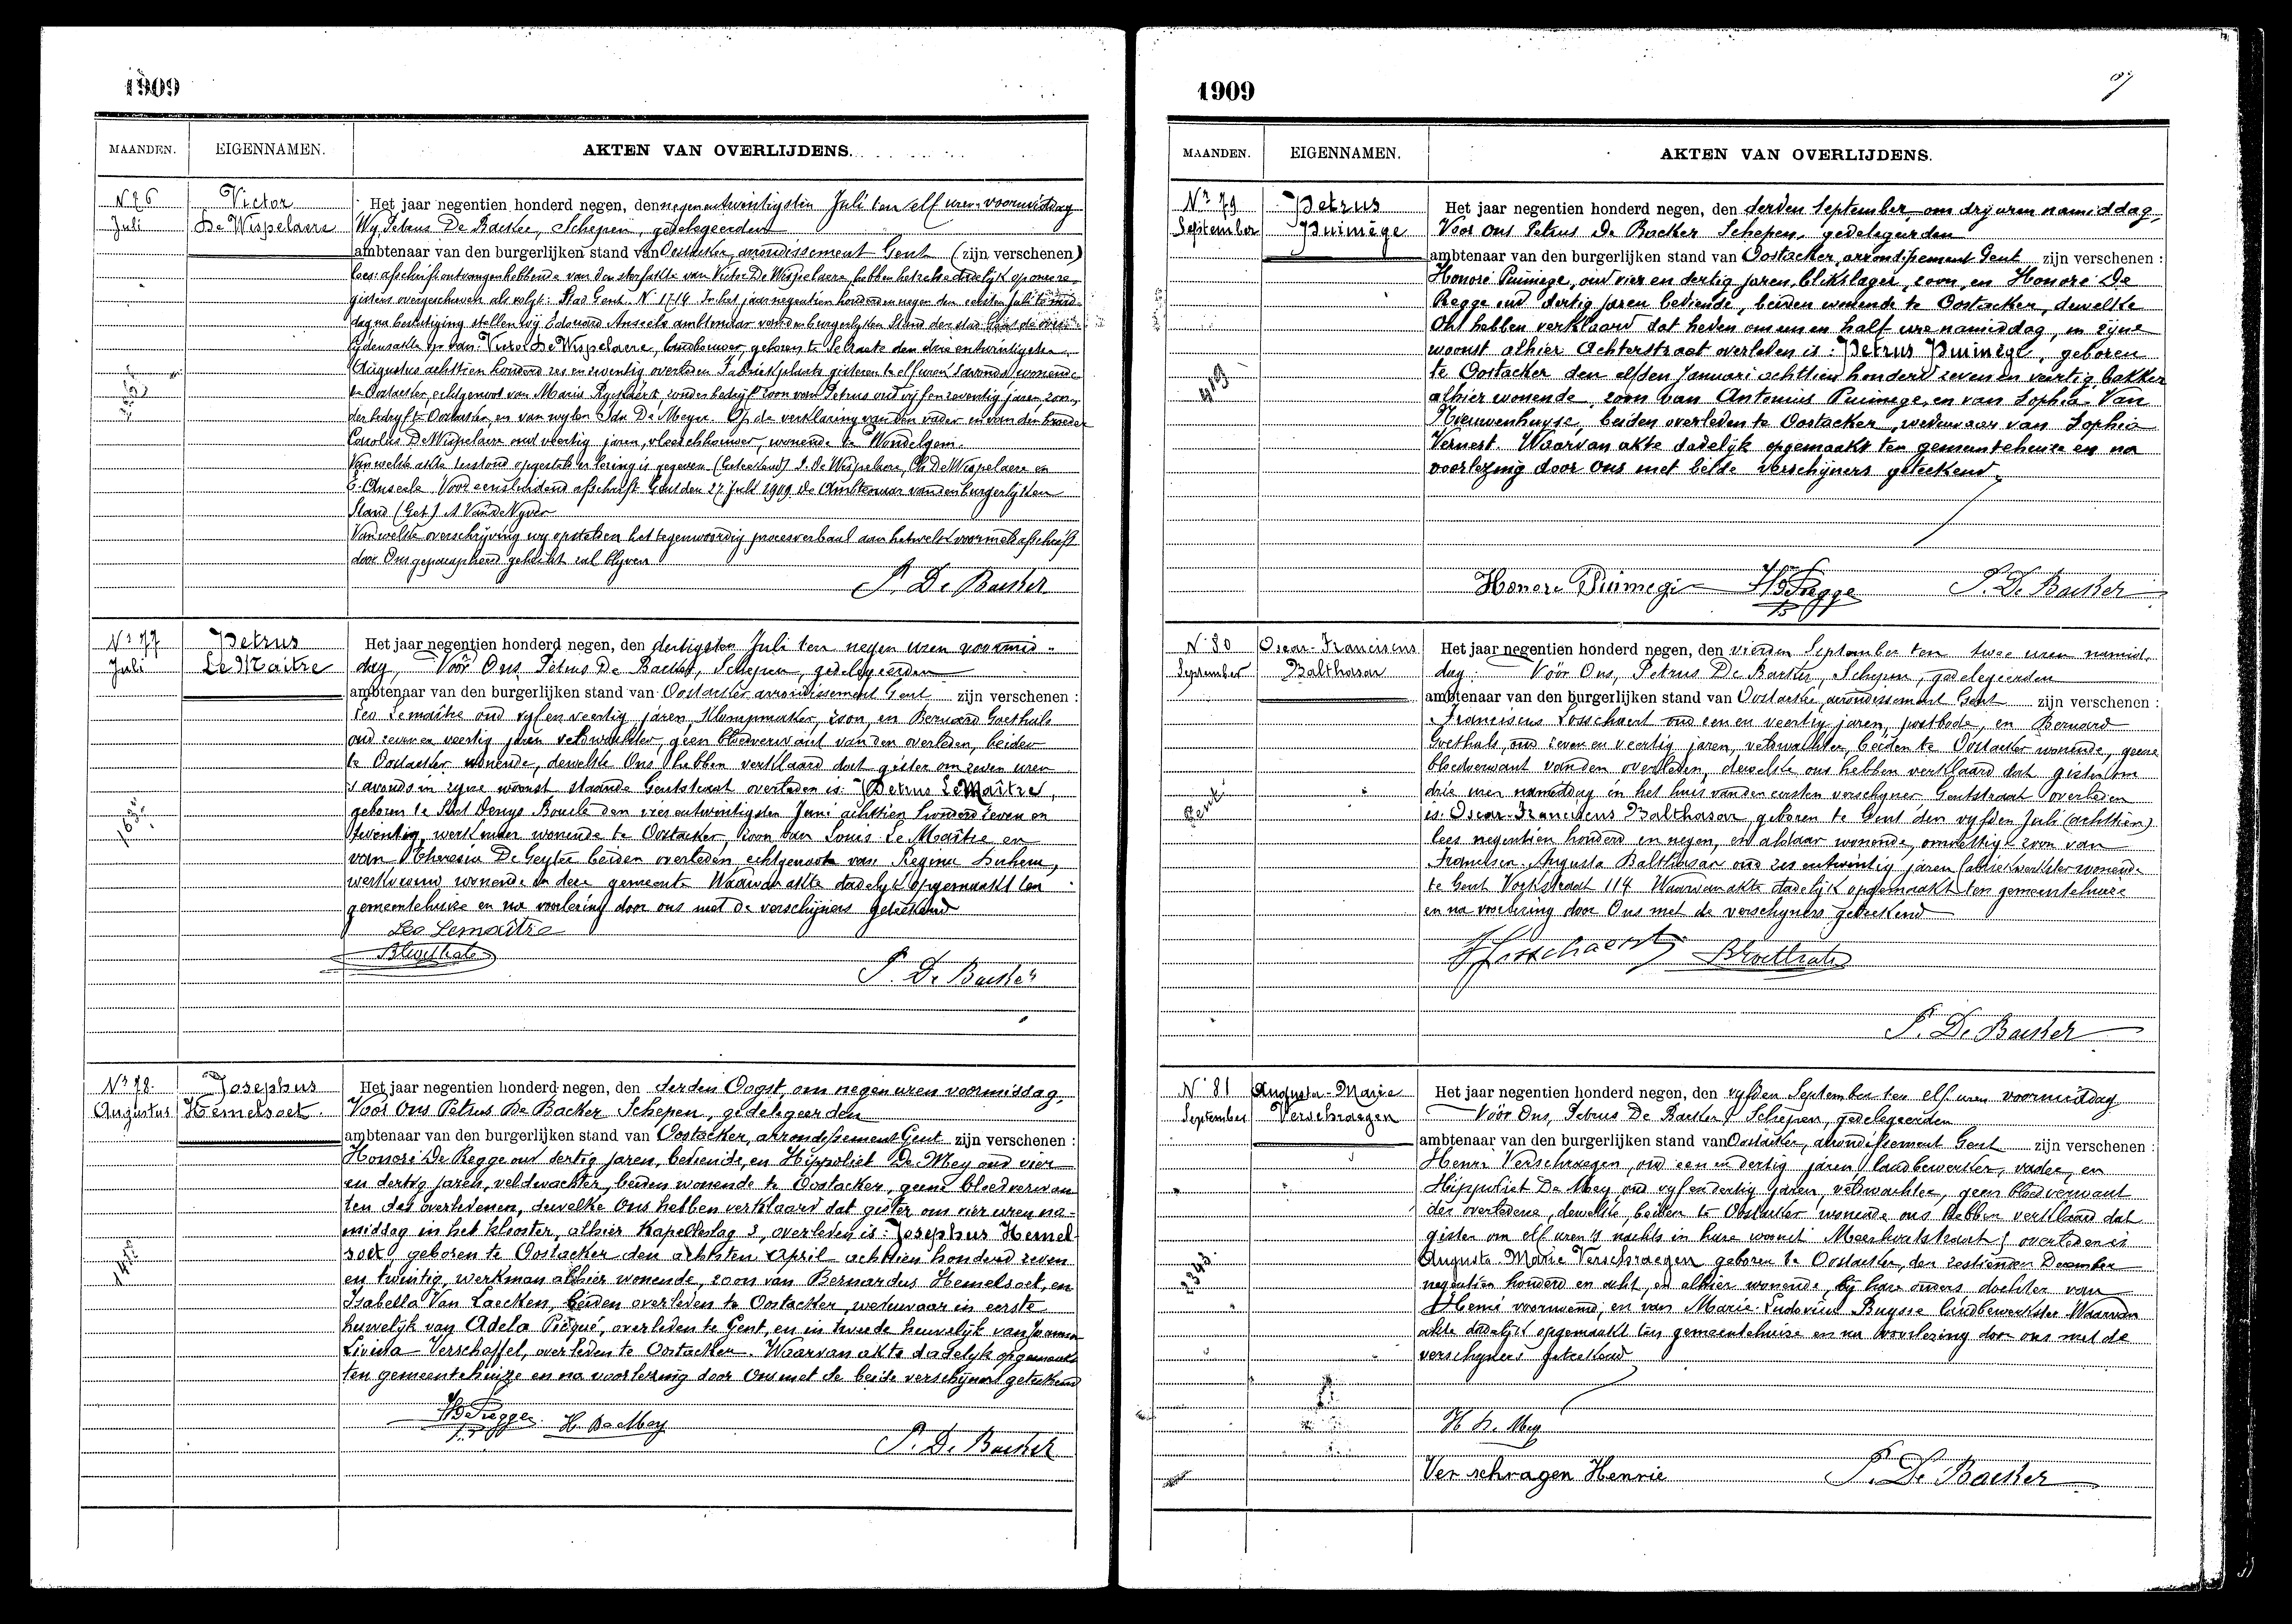 1909
MAANDEN. EIGENNAMEN. AKTEN VAN OVERLIJDENS.
N 76 Victor
Juli De Wispelaere
Het jaar negentien honderd negen, den negenentwintigsten Juli ten elf uren voormiddag
Wy Petrus De Backer, Schepen, gedelegeerden
ambtenaar van den burgerlijken stand van Oostacker, arrondissement Gent (zijn verschenen)
lees: afschrift ontvangen hebbende van den sterfakte van Victor De Wispelaere, hebben hetzelve dadelyk op onze re-
gisters overgeschreven als volgt: Stad Gent. N 1714 In het jaar negentien honderd en negen den eersten Juli te mid-
dag na bestatiging stellen wij Edouard Anseele ambtenaar van den burgerlyken Stand der stad Gent de over-
lydensakte op van: Victor De Wispelaere, landbouwer, geboren te Selzaete den drie entwintigsten
Augustus achttien honderd zes en zeventig overleden Fabriekplaats gisteren te elf uren 's avonds wonende
te Oostacker, echtgenoot van Maria Ryckaert zonder bedryf zoon van Petrus oud vyf en zeventig jaren zon-
der bedryf te Oostacker, en van wylen Ida De Meyer. Op de verklaring van den vader en van den broeder
Carolus De Wispelaere oud veertig jaren, vleeschhouwer, wonende te Wondelgem.
Van welke akte terstond opgesteld en lezing is gegeven (Geteekend) P. De Wispelaere, Ch De Wispelaere en
E. Anseele Voor eensluidend afschrift Gent den 27 Juli 1909 De Ambtenaar van den burgerlyken
Stand (Get.) A Van de Vyver
Van welke overschrijving wy opstellen het tegenwoordig procesverbaal aan hetwelk voormeld afschrift
door Ons geparapheerd gehecht zal blyven
P. De Backer
N° 77 Petrus
Juli Le Maitre
Het jaar negentien honderd negen, den dertigsten Juli ten negen uren voormid-
dag, Vóór Ons, Petrus De Backer, Schepen, gedelegeerden
ambtenaar van den burgerlijken stand van Oostacker arrondissement Gent zijn verschenen :
Leo Lemaître oud vyf en veertig jaren, klompmaker, zoon, en Bernard Goethals
oud zeven en veertig jaren veldwachter, geen bloedverwant van den overleden, beiden
te Oostacker wonende, dewelke Ons hebben verklaard dat gister om zeven uren
's avonds in zyne woonst staande Gentstraat overleden is: Petrus LeMaître,
geboren te Sint Denys Boucle den vier entwintigsten Juni achttien honderd zeven en
twintig, werkman wonende te Oostacker, zoon van Louis Le Maître en
van Theresia De Geyter beiden overleden echtgenoot van Regina Duhem,
werkvrouw wonende in deze gemeente Waarvan akte dadelyk opgemaakt ten
gemeentehuize en na voorlezing door ons met de verschijners geteekend
Leo Lemaître
B Goethals
P. De Backer
N° 78. Josephus
Augustus Hemelsoet.
Het jaar negentien honderd negen, den derden Oogst, om negen uren voormiddag,
Vóór Ons Petrus De Backer Schepen, gedelegeerden
ambtenaar van den burgerlijken stand van Oostacker, arrondissement Gent zijn verschenen :
Honoré De Regge oud dertig jaren, bediende, en Hippoliet De Mey oud vier
en dertig jaren, veldwachter, beiden wonende te Oostacker, geene bloedverwan
ten des overledenen, dewelke Ons hebben verklaard dat gister om vier uren na-
middag in het klooster, alhier Kapelleslag 3, overleden is: Josephus Hemel-
soet, geboren te Oostacker den achtsten April achttien honderd zeven
en twintig, werkman alhier wonende, zoon van Bernardus Hemelsoet, en
Isabella Van Laecken, beiden overleden te Oostacker, weduwaar in eerste
huwelyk van Adela Picqué, overleden te Gent, en in tweede huwelijk van Joanna
Livina Verschaffel, overleden te Oostacker. Waarvan akte dadelyk opgemaakt
ten gemeentehuize en na voorlezing door Ons met de beide verschijners geteekend
H De Regge H. De Mey
P. De Backer
1909
MAANDEN. EIGENNAMEN. AKTEN VAN OVERLIJDENS.
N° 79 Petrus
September Puimège
Het jaar negentien honderd negen, den derden September, om drij uren namiddag,
Vóór Ons Petrus De Backer Schepen, gedelegeerden
ambtenaar van den burgerlijken stand van Oostacker, arrondissement Gent zijn verschenen :
Honoré Puimege, oud vier en dertig jaren, blikslager, zoon, en Honoré De
Regge oud dertig jaren bediende, beiden wonende te Oostacker, dewelke
Ons hebben verklaard dat heden om een en half ure namiddag, in zijne
woonst alhier Achterstraat overleden is: Petrus Puimège, geboren
te Oostacker den elfden Januari achttien honderd zeven en veertig, bakker
alhier wonende, zoon van Antonius Puimege, en van Sophia Van
Nieuwenhuyse, beiden overleden te Oostacker, weduwaar van Sophia
Vernest. Waarvan akte dadelyk opgemaakt ten gemeentehuize en na
voorlezing door Ons met beide verschijners geteekend.
Honore Puimege H De Regge P. De Backer
N° 80 Oscar-Franciscus
September Balthasar
Het jaar negentien honderd negen, den vierden September ten twee uren namid-
dag Vóór Ons, Petrus De Backer, Schepen, gedelegeerden
ambtenaar van den burgerlijken stand van Oostacker, arrondissement Gent zijn verschenen :
Franciscus Losschaert oud een en veertig jaren, postbode, en Bernard
Goethals, oud zeven en veertig jaren, veldwachter, beiden te Oostacker wonende, geene
bloedverwant van den overleden, dewelke ons hebben verklaard dat gister om
drie uren namiddag in het huis van den eersten verschyner Gentstraat overleden
Gent
is: Oscar-Franciscus Balthasar, geboren te Gent den vyfden Juli (achttien)
lees negentien honderd en negen, en aldaar wonende, onwettige zoon van
Francisca-Augusta Balthasar oud zes entwintig jaren fabriekwerkster wonende
te Gent Voskstraat 114 Waarvan akte dadelyk opgemaakt ten gemeentehuize
en na voorlezing door Ons met de verschyners geteekend
F Losschaert B Goethals
P. De Backer
N° 81 Augusta-Marie
September Verschraegen
Het jaar negentien honderd negen, den vyfden September ten elf uren voormiddag
Vóór Ons, Petrus De Backer, Schepen, gedelegeerden
ambtenaar van den burgerlijken stand van Oostacker, arrondissement Gent zijn verschenen :
Henri Verschraegen, oud een en dertig jaren, landbewerker, vader, en
Hippoliet De Mey oud vyf en dertig jaren, veldwachter, geen bloedverwant
der overledene, dewelke, beiden te Oostacker wonende ons hebben verklaard dat
gister om elf uren 's nachts in hare woonst Meerhoutstraat, overleden is
Augusta Marie Verschraegen geboren te Oostacker, den zestienden December
2343.
negentien honderd en acht, en alhier wonende, by hare ouders dochter van
Henri voornoemd, en van Marie Ludovica Buysse landbewerkster Waarvan
akte dadelyk opgemaakt ten gemeentehuize en na voorlezing door ons met de
verschyners geteekend
H De Mey
Verschragen Henrie P. De Backer